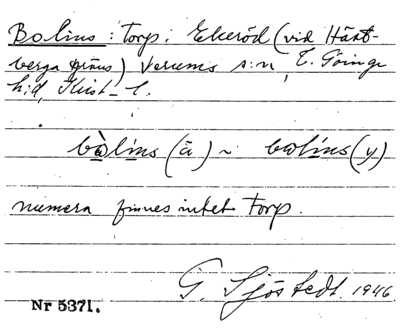 Bolins: Torp i Ekeröd (vid Härt-
berga gräns) Verums s:n, V. Göinge
h:d, Krist. l.
bòlíns (ā) ~ bolíns (y)
numera finnes intet torp.
G. Sjöstedt. 1946
Nr 5371.